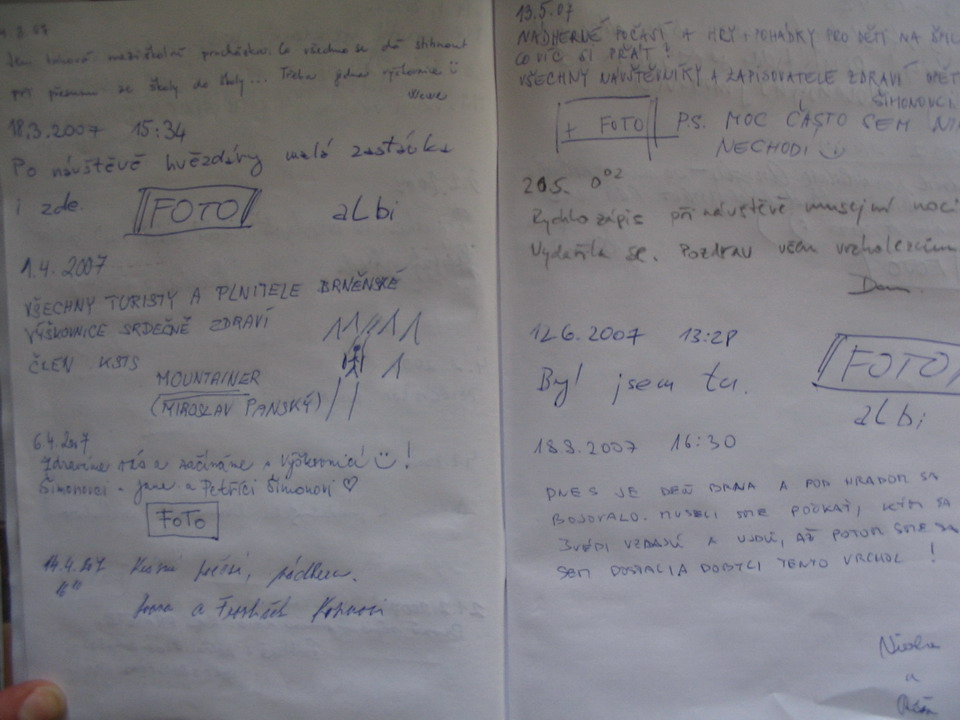 Jen taková meziškolní procházka. Co všechno se dá stihnout
při přesunu ze školy do školy... Třeba jedna výškovnice
18.3.2007 15:34
Po návštěvě hvězdárny malá zastávka
i zde. FOTO albi
1.4.2007
VŠECHNY TURISTY A PLNITELE BRNĚNSKÉ
VÝŠKOVNICE SRDEČNĚ ZDRAVÍ
ČLEN KSTS
MOUNTAINER
(MIROSLAV PANSKÝ)
6.4.2007
Zdravíme vás a začínáme s výškovnicí !
Šimonovci - Jana a Petříci Šimonovi
FOTO
14.4.2007 Krásné počasí, nádhera.
a František
13.5.07
NÁDHERNÉ POČASÍ A HRY + POHÁDKY PRO DĚTI NA
CO VÍC SI PŘÁT!
VŠECHNY NÁVŠTĚVNÍKY A ZAPISOVATELE ZDRAVÍ OPĚT
ŠIMONOVCI
+ FOTO P.S. MOC ČASTO SEM
NECHODÍ
20.5. 0:02
Rychlo zápis při návštěvě musejní noci
Vydařila se. Pozdrav všem vrcholovcům
12.6.2007 13:28
Byl jsem tu. FOTO
albi
18.8.2007 16:30
DNES JE DEŇ BRNA A POD HRADOM SA
BOJOVALO. MUSELI SME POČKAŤ, KÝM SA
ŠVÉDI VZDAJÚ A UJDÚ, AŽ POTOM SME SA
SEM DOSTALI A DOBYLI TENTO VRCHOL!
a